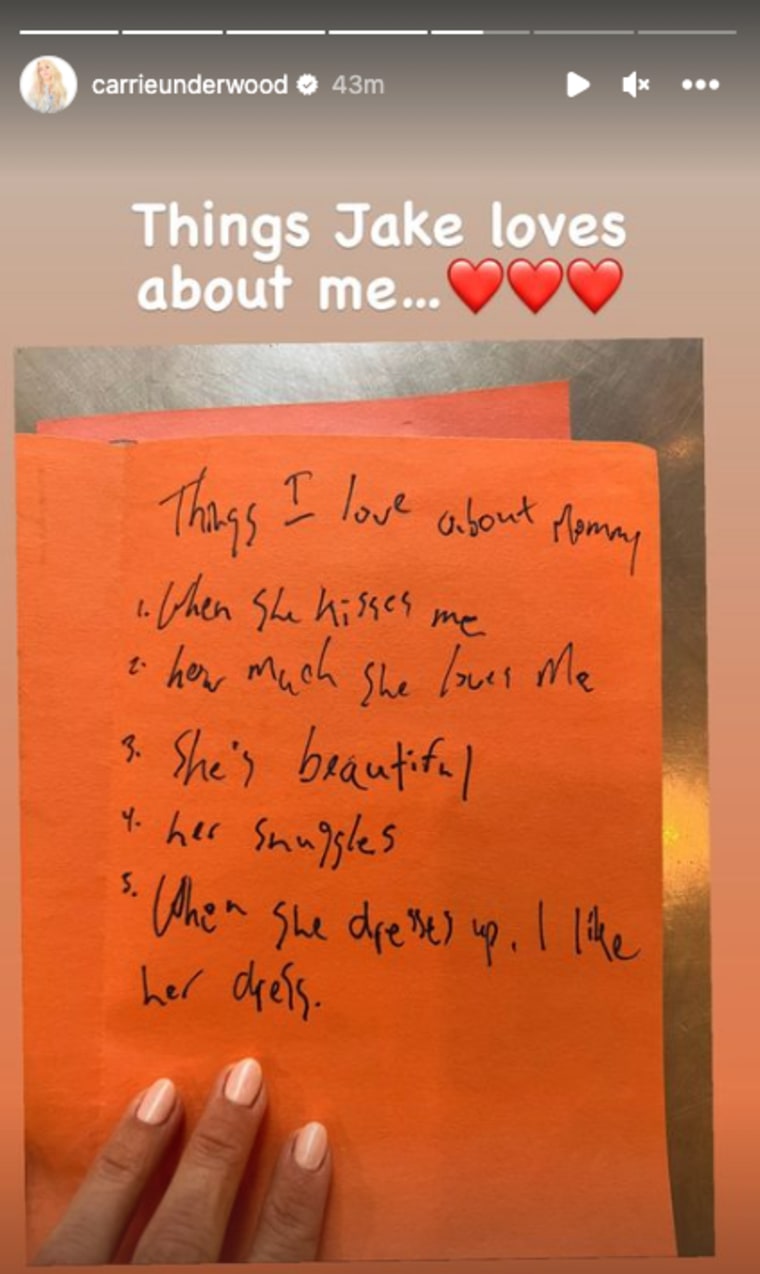 carrieunderwood 43m
Things Jake loves
about me...❤️❤️❤️
Things I love about Mommy
1. When she kisses me
2. how much she loves Me
3. She's beautiful
4. her snuggles
5. When she dresses up. I like
her dress.